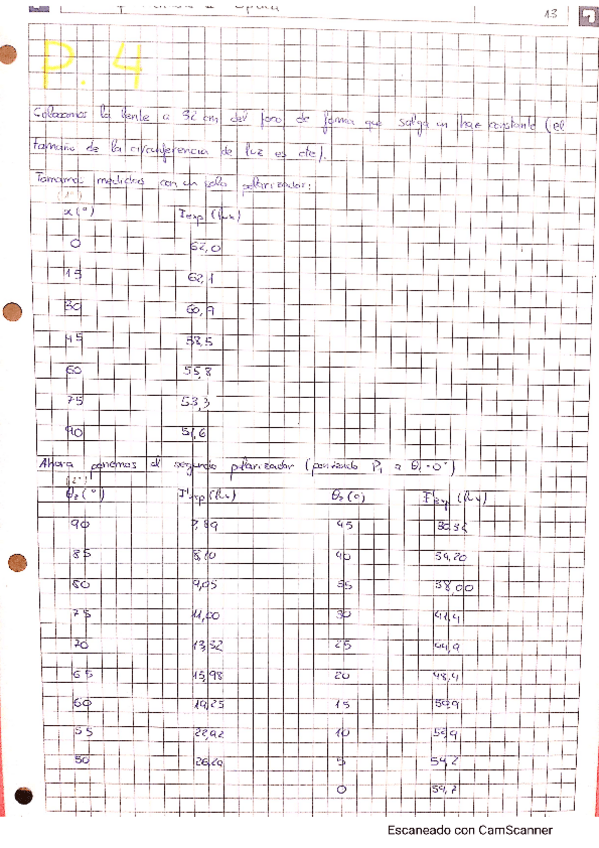 13
P. 4
Colocamos la lente a 32 cm del foco de forma que salga un haz constante (el
tamaño de la circunferencia de luz es cte).
Tomamos medidas con un solo polarizador:
(°) I exp (lux)
0 62,0
15 62,1
30 60,9
45 58,5
60 55,8
75 53,3
90 51,6
Ahora ponemos el segundo polarizador (poniendo P1 a θ1=0°)
θ2(°) I exp (lux) θ2(°) I exp (lux)
90 45
85 40 34,20
80 9,05 35 38,00
75 11,00 30 41,4
70 13,32 25 44,9
65 15,98 20 48,4
60 19,25 15
55 22,92 10
50 5 54,2
0 54,7
Escaneado con CamScanner